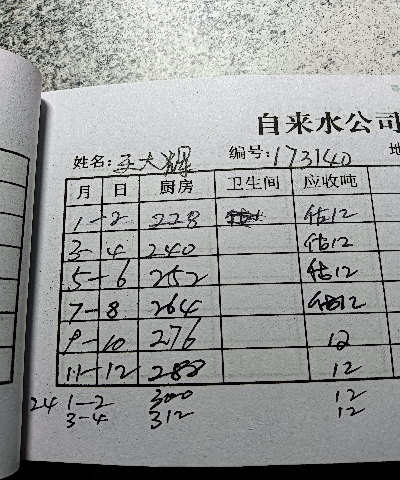 自来水公司
姓名: 王大辉 编号: 173140
月 日 厨房 卫生间 应收吨
1-2 228 估12
3-4 240 估12
5-6 252 估12
7-8 264 估12
9-10 276 12
11-12 288 12
24 1-2 300 12
3-4 312 12